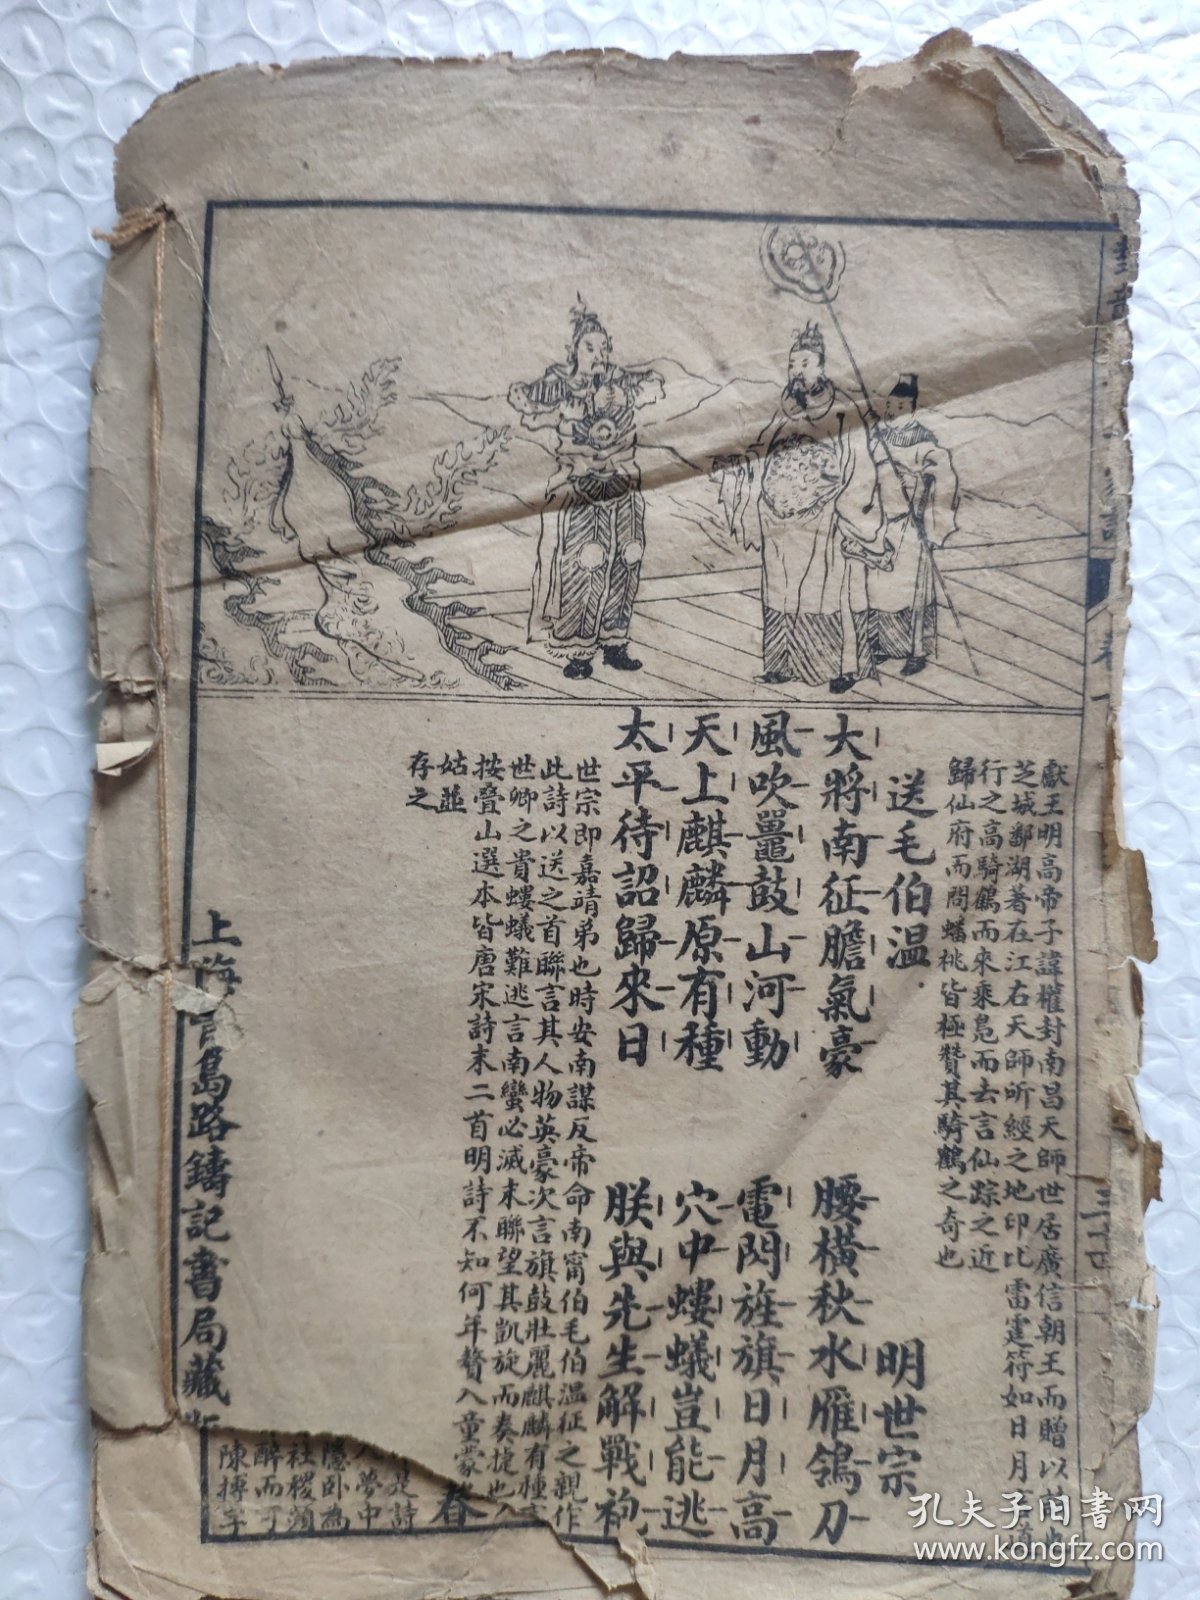 獻王明高帝子諱權封南昌天師世居廣信朝王而贈以
芝城鄱湖著在江右天師所經之地印比雷霆符如日月
行之高騎鶴而來乘鳧而去言仙踪之近
歸仙府而問蟠桃皆極贊其騎鶴之奇也
送毛伯温
明世宗
大將南征膽氣豪
腰橫秋水雁鴒刀
風吹鼉鼓山河動
電閃旌旗日月高
天上麒麟原有種
穴中螻蟻豈能逃
太平待詔歸來日
朕與先生解戰袍
世宗即嘉靖弟也時安南謀反帝命南甯伯毛伯温征之親作
此詩以送之首聯言其人物英豪次言旗鼓壯麗麒麟有種言
世卿之貴螻蟻難逃言南蠻必滅末聯望其凱旋而奏捷也
按疊山選本皆唐宋詩末二首明詩不知何年贅入童蒙
姑並
存之
春
是詩
夢中
隱卧為
社稷頻
醉而可
陳摶字
上海
島路鑄記書局藏
孔夫子旧书网
www.kongfz.com